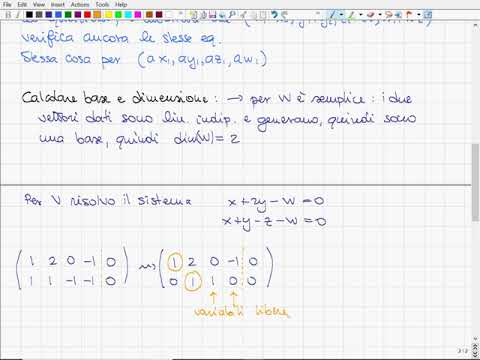 File Edit View Insert Actions Tools Help
verifica ancora le stesse eq.
Stessa cosa per (ax₁, ay₁, az₁, aw₁)
Calcolare base e dimensione: → per W è semplice: i due
vettori dati sono lin. indip. e generano, quindi sono
una base, quindi dim(W)=2
Per V risolvo il sistema x+2y-w=0
x+y-z-w=0
( 1 2 0 -1 0 ) ⇝ ( 1 2 0 -1 0 )
( 1 1 -1 -1 0 ) ( 0 1 1 0 0 )
↑ ↑
variabili libere
2 / 2